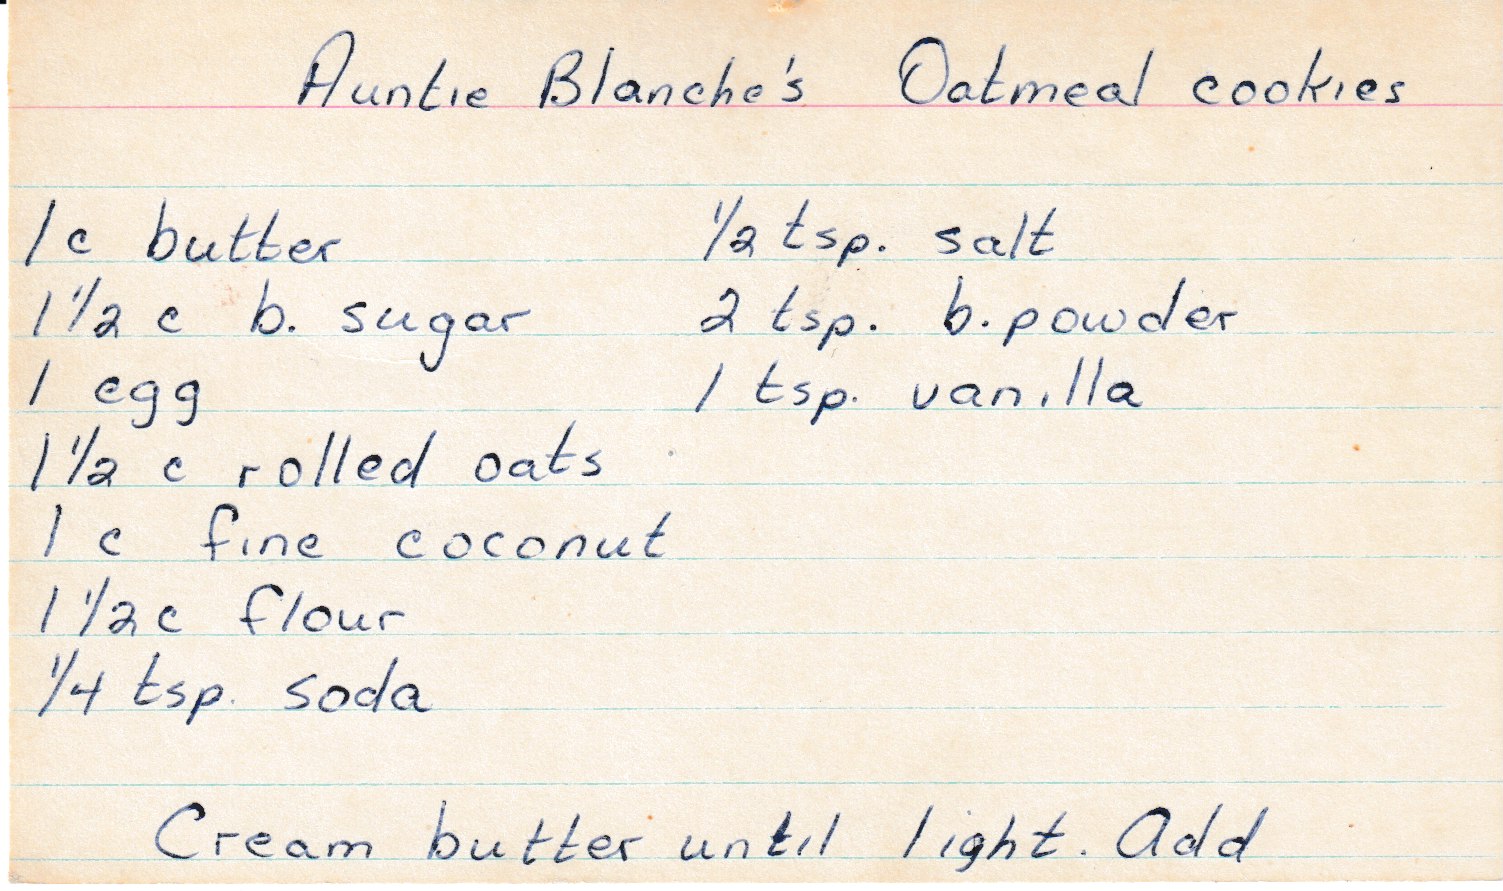 Auntie Blanche's Oatmeal cookies
1 c butter
1 1/2 c b. sugar
1 egg
1 1/2 c rolled oats
1 c fine coconut
1 1/2 c flour
1/4 tsp. soda
1/2 tsp. salt
2 tsp. b. powder
1 tsp. vanilla
Cream butter until light. Add